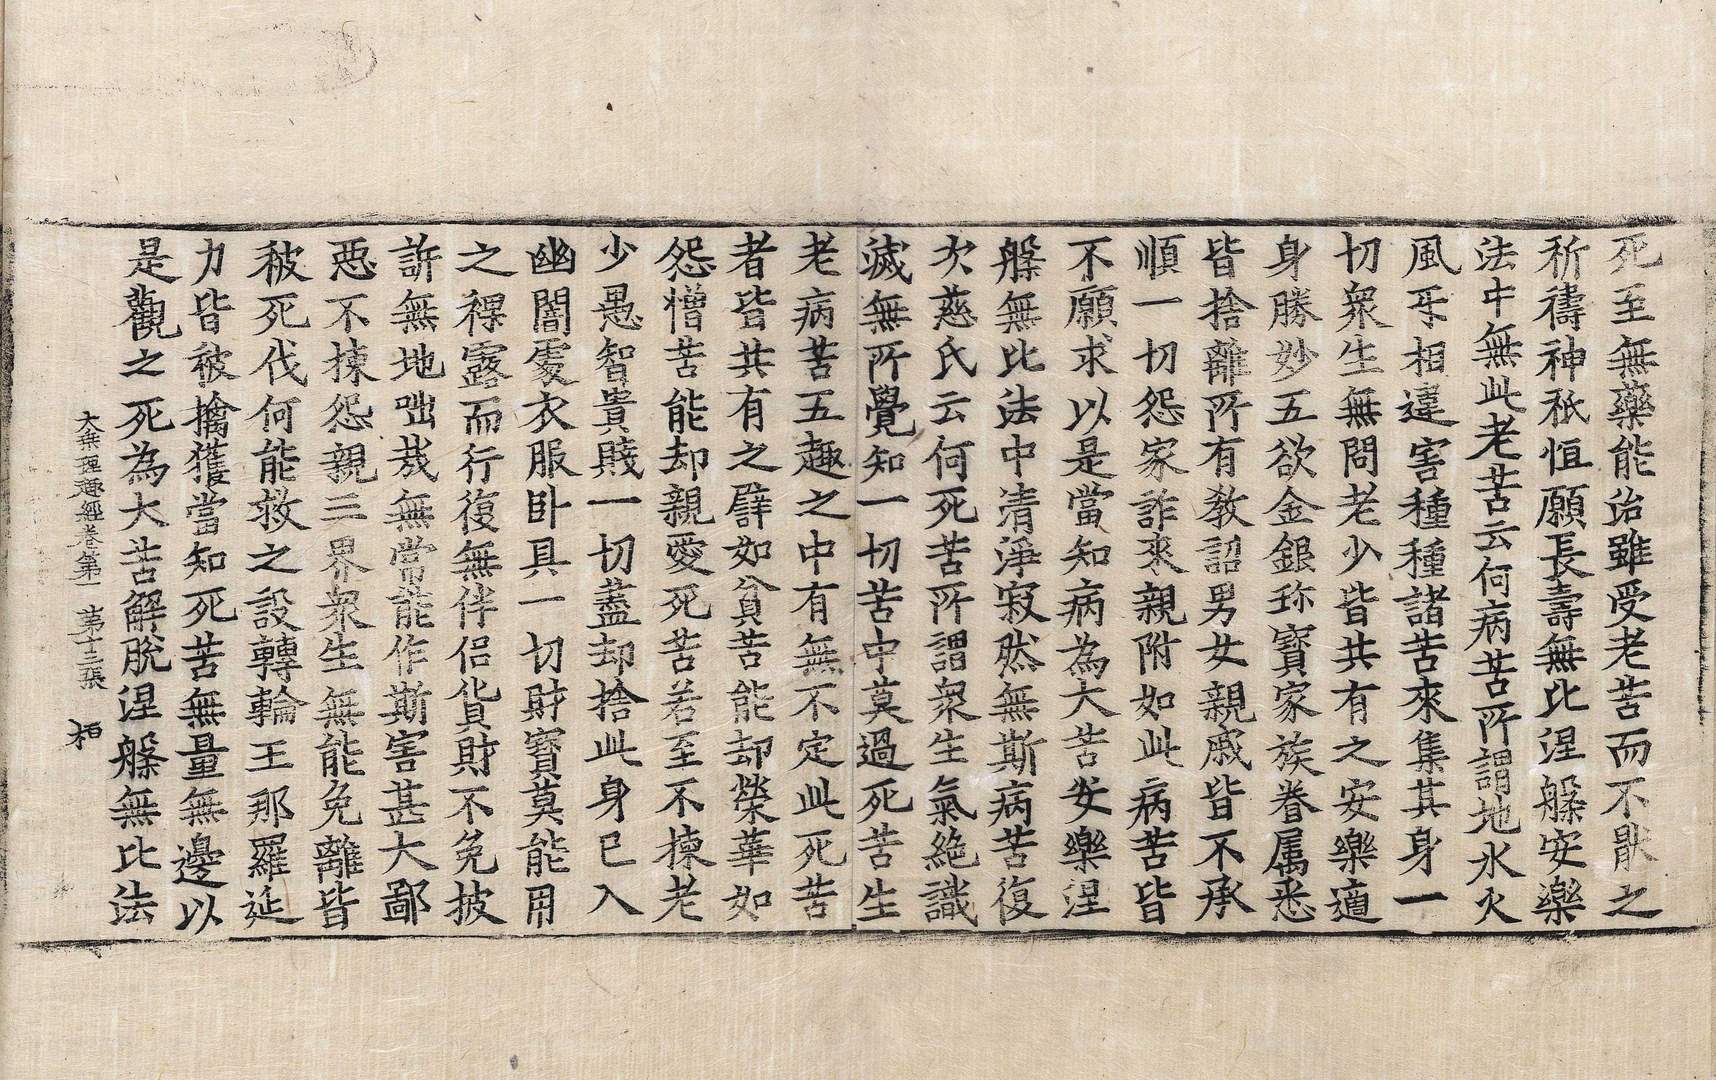 死至無藥能治雖受老苦而不猒之
祈禱神祇恒願長壽無比涅槃安樂
法中無此老苦云何病苦所謂地水火
風㸦相違害種種諸苦來集其身一
切衆生無問老少皆共有之安樂適
身勝妙五欲金銀珎寳家族眷属悉
皆捨離所有教詔男女親戚皆不承
順一切怨家詐來親附如此病苦皆
不願求以是當知病為大苦安樂涅
槃無比法中清淨寂然無斯病苦復
次慈氏云何死苦所謂衆生氣絶識
滅無所覺知一切苦中莫過死苦生
老病苦五趣之中有無不定此死苦
者皆共有之譬如貧苦能却榮華如
怨憎苦能却親愛死苦若至不揀老
少愚智貴賤一切盡却捨此身已入
幽闇處衣服卧具一切財寳莫能用
之裸露而行復無伴侣貨財不免披
訴無地咄㢤無常能作斯害甚大鄙
惡不揀怨親三界衆生無能免離皆
被死伐何能救之設轉輪王那羅延
力皆被擒獲當知死苦無量無邊以
是觀之死為大苦解脱涅槃無比法
大乗理趣經卷第一 第十二張 栢